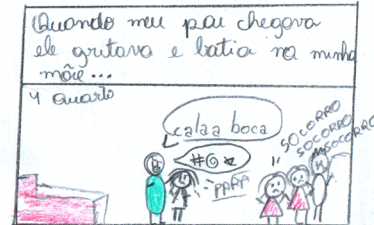 Quando meu pai chegava
ele gritava e batia na minha
mãe...
4 quarto
cala a boca
#@*
PARA
SOCORRO
SOCORRO
SOCORRO